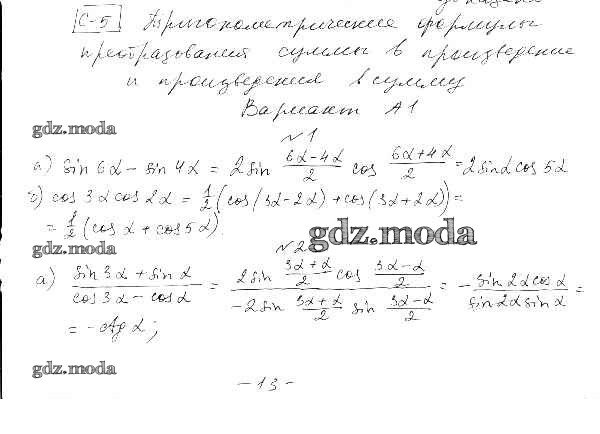 С-5 Тригонометрические формулы
преобразования суммы в произведение
и произведения в сумму
Вариант А1
gdz.moda
№1
а) sin 6α - sin 4α = 2 sin (6α-4α)/2 cos (6α+4α)/2 = 2 sinα cos 5α
б) cos 3α cos 2α = 1/2 (cos(3α-2α) + cos(3α+2α)) =
= 1/2 (cos α + cos 5α).
gdz.moda
gdz.moda
№2
а) (sin 3α + sin α)/(cos 3α - cos α) = (2 sin (3α+α)/2 cos (3α-α)/2)/(-2 sin (3α+α)/2 sin (3α-α)/2) = - (sin 2α cos α)/(sin 2α sin α) =
= - ctg α;
gdz.moda
- 13 -